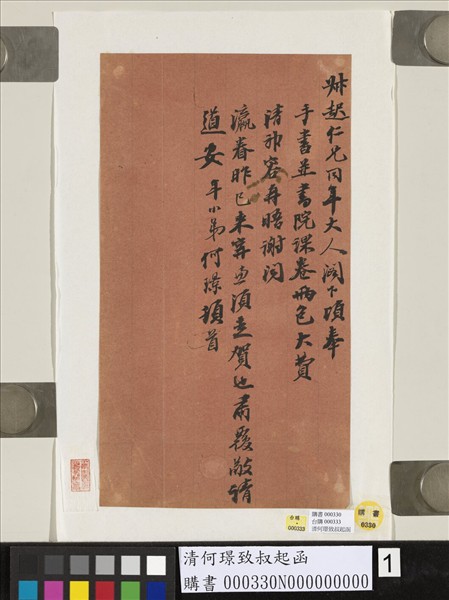 叔起仁兄同年大人閣下頃奉
手書並書院課卷兩包大費
清神容再晤謝聞
瀛眷昨已來寧須走賀也肅覆敬請
道安 年小弟何璟頓首
台購
000333
購書 000330
台購 000333
清何璟致叔起函
購書
0330
清何璟致叔起函
購書 000330N000000000
1